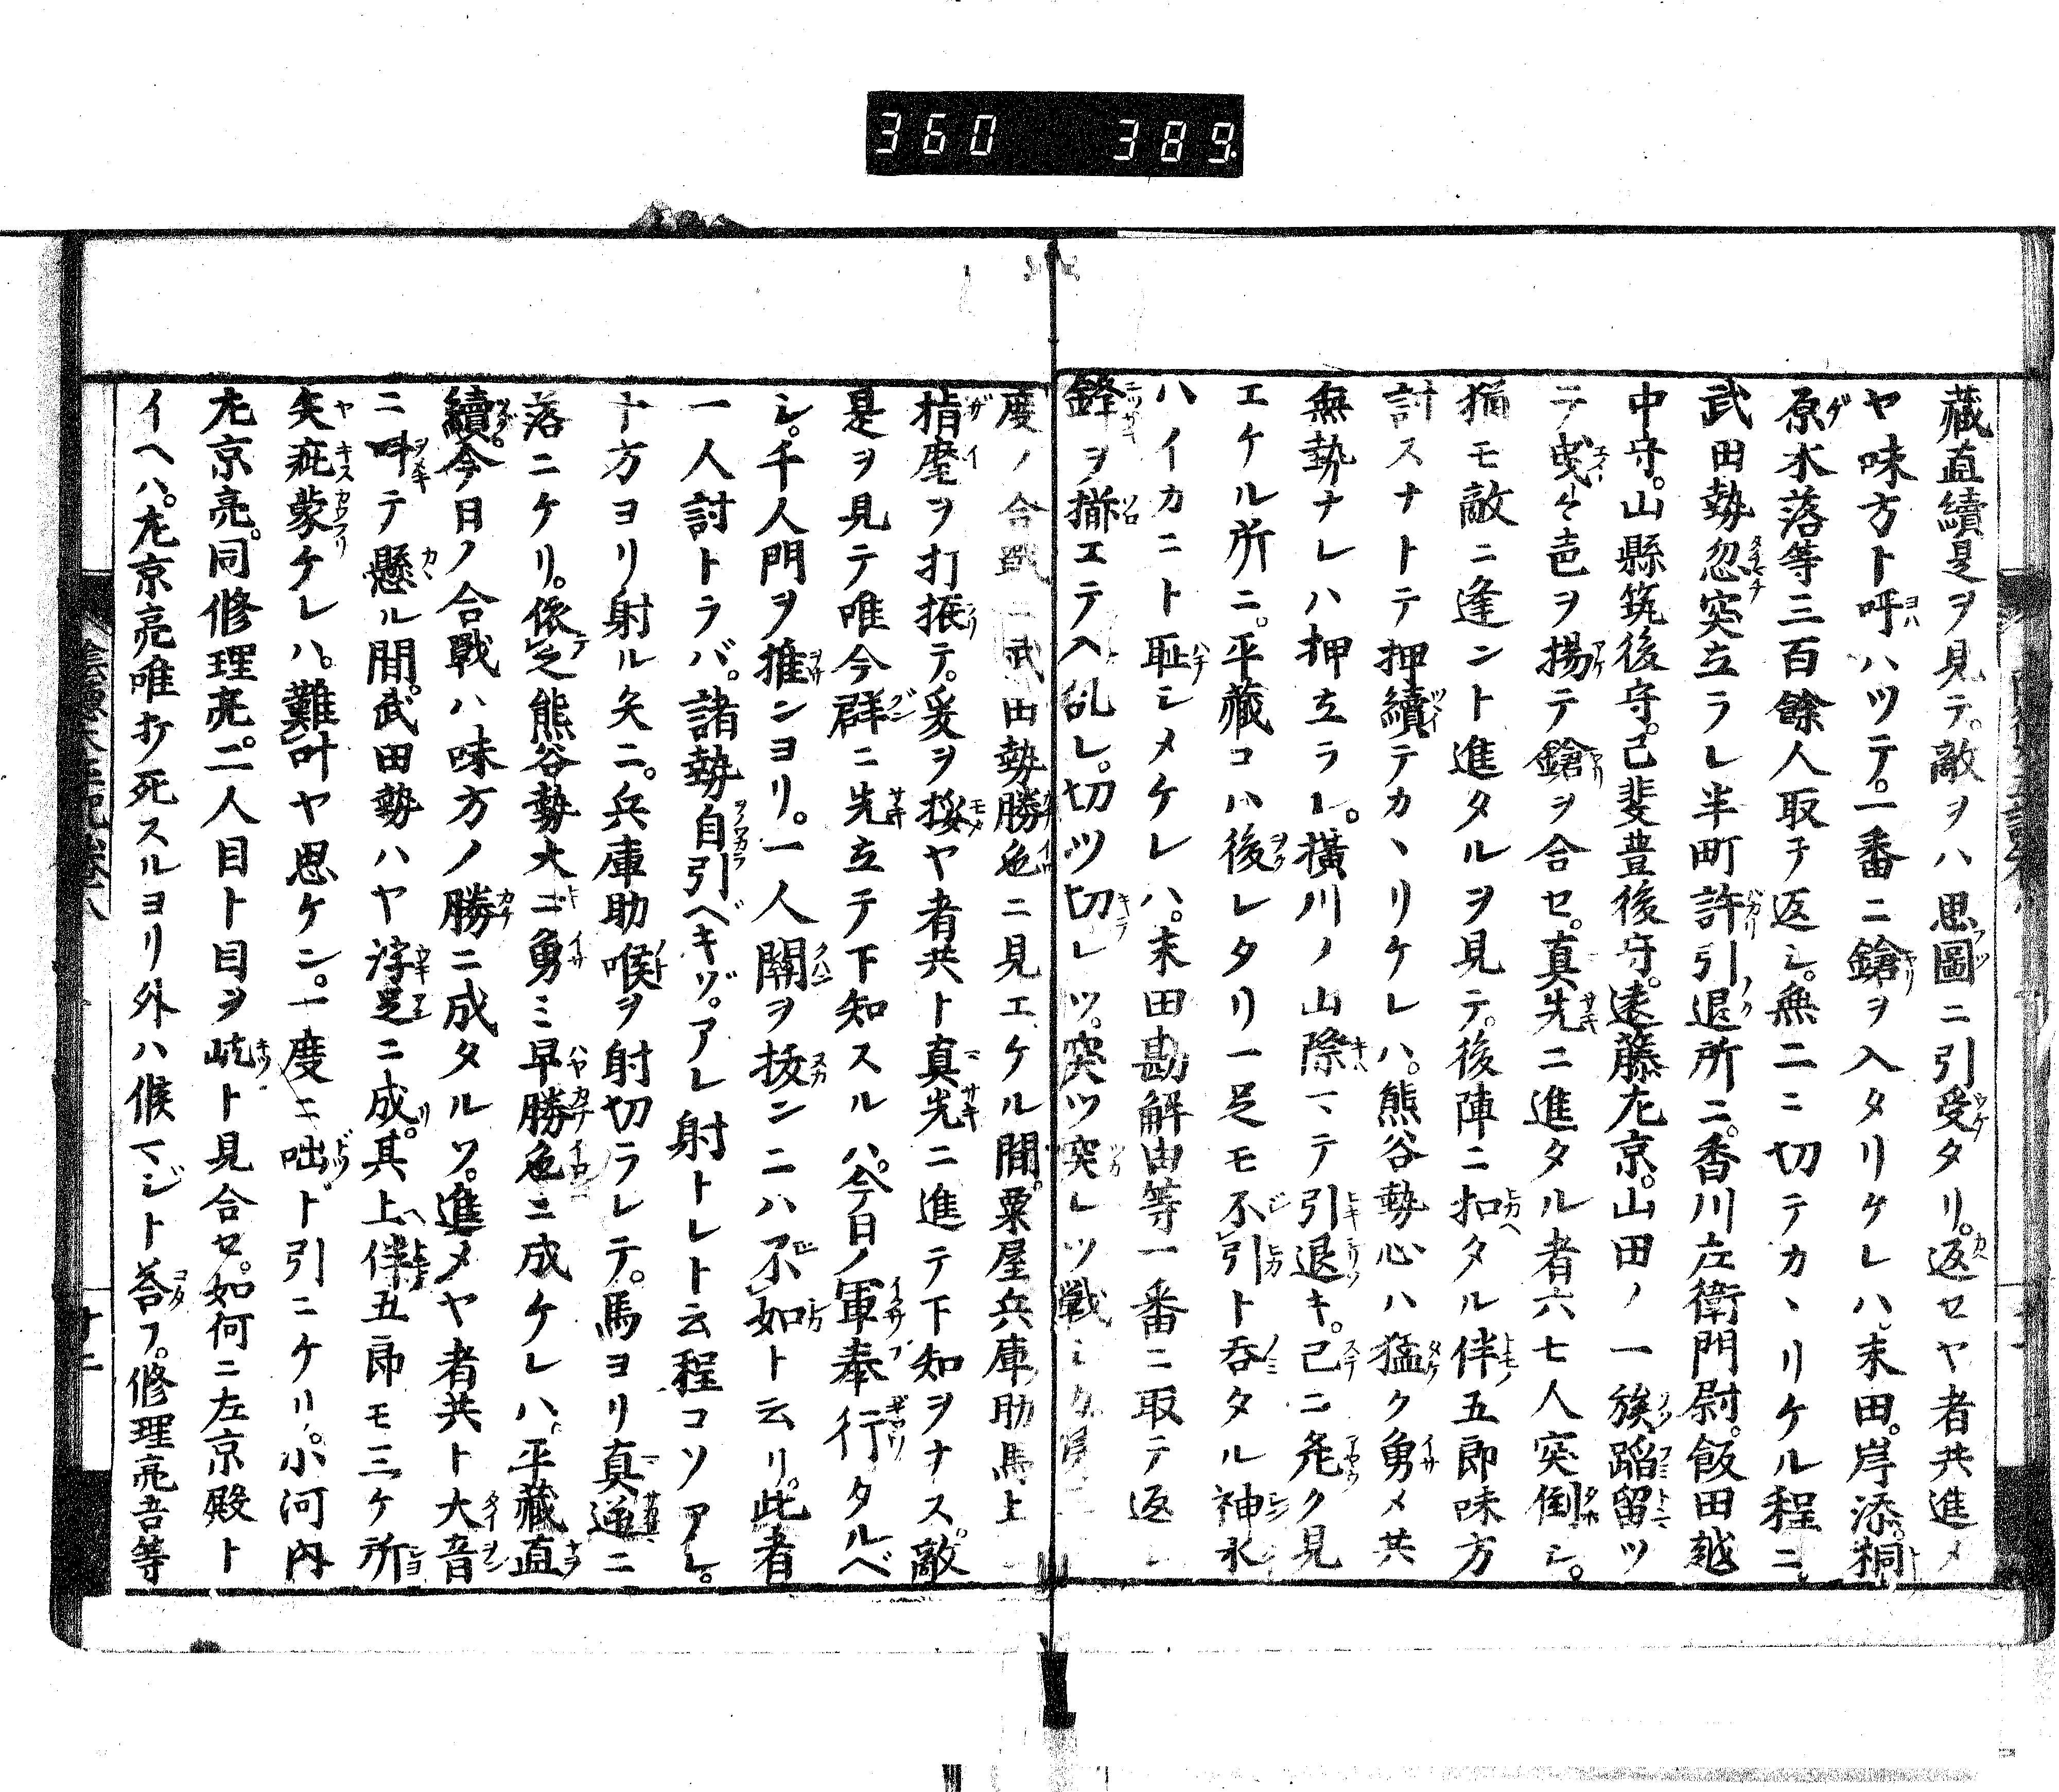 360 389
藏直續是ヲ見テ。敵ヲハ思圖ニ引受タリ。返セヤ者共進メ
ヤ味方ト呼ハツテ。一番ニ鎗ヲ入タリケレハ。末田。岸添。桐
原水落等三百餘人取テ返シ。無二ニ切テカヽリケル程ニ。
武田勢忽突立ラレ半町許引退所ニ。香川左衛門尉。飯田越
中守。山縣筑後守。己斐豊後守。遠藤左京。山田ノ一族蹈留ツ
テ曳々声ヲ揚テ鎗ヲ合セ。真先ニ進タル者六七人突倒シ。
猶モ敵ニ逢ント進タルヲ見テ。後陣ニ扣タル伴五郎味方
討スナトテ押續テカヽリケレハ。熊谷勢心ハ猛ク勇メ共
無勢ナレハ押立ラレ。横川ノ山際マテ引退キ。已ニ危ク見
エケル所ニ。平藏コハ後レタリ一足モ不引ト呑タル神水
ハイカニト恥シメケレハ。末田勘解由等一番ニ取テ返シ
鋒ヲ揃エテ入乱レ。切ツ切レツ。突ツ突レツ戦シカ
度ノ合戰ニ武田勢勝色ニ見エケル間。粟屋兵庫助馬上ニ
指麾ヲ打振テ。爰ヲ採ヤ者共ト真先ニ進テ下知ヲナス。敵
是ヲ見テ唯今群ニ先立テ下知スルハ。今日ノ軍奉行タルベ
シ。千人門ヲ推ンヨリ。一人關ヲ抜ンニハ不如ト云リ。此者
一人討トラバ。諸勢自引ベキゾ。アレ射トレト云程コソアレ。
十方ヨリ射ル矢ニ。兵庫助喉ヲ射切ラレテ。馬ヨリ真逆ニ
落ニケリ。依之熊谷勢大ニ勇ミ早勝色ニ成ケレハ。平藏直
續今日ノ合戰ハ味方ノ勝ニ成タルソ。進メヤ者共ト大音
ニ呌テ懸ル間。武田勢ハヤ浮足ニ成。其上伴五郎モ三ケ所
矢疵蒙ケレハ。難叶ヤ思ケン。一度ニ咄ト引ニケリ。小河内
左京亮。同修理亮。二人目ト目ヲ屹ト見合セ。如何ニ左京殿ト
イヘハ。左京亮唯打死スルヨリ外ハ候マジト荅フ。修理亮吾等
十二